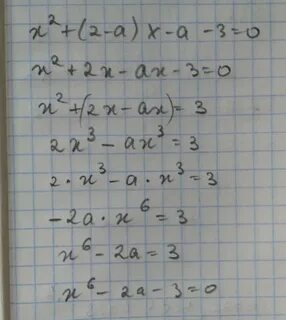 x² + (2-a) x - a - 3 = 0
x² + 2x - ax - 3 = 0
x² + (2x - ax) = 3
2x³ - ax³ = 3
2 · x³ - a · x³ = 3
-2a · x⁶ = 3
x⁶ - 2a = 3
x⁶ - 2a - 3 = 0